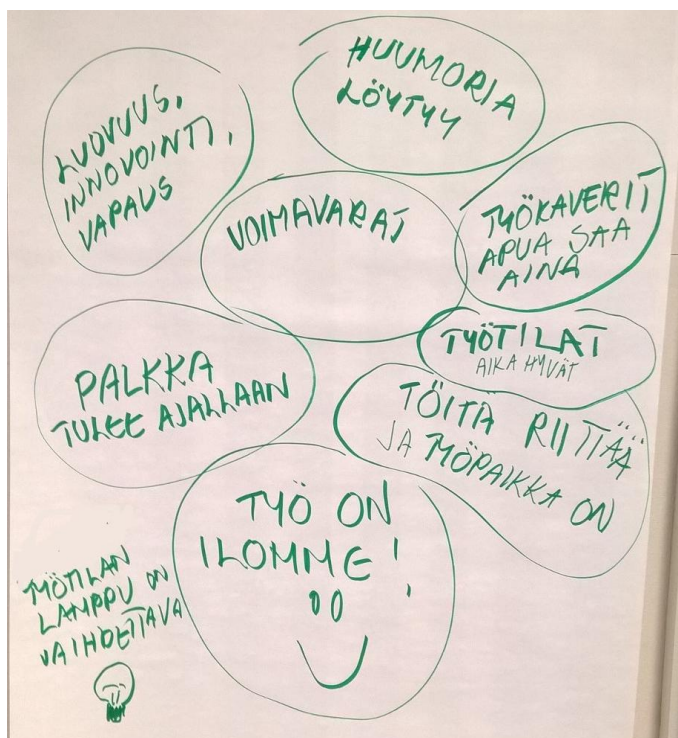 HUUMORIA
LÖYTYY
LUOVUUS,
INNOVOINTI,
VAPAUS
VOIMAVARAT
TYÖKAVERIT
APUA SAA
AINA
TYÖTILAT
AIKA HYVÄT
PALKKA
TULEE AJALLAAN
TÖITÄ RIITTÄÄ
JA TYÖPAIKKA ON
TYÖ ON
ILOMME!
TYÖTILAN
LAMPPU ON
VAIHDETTAVA